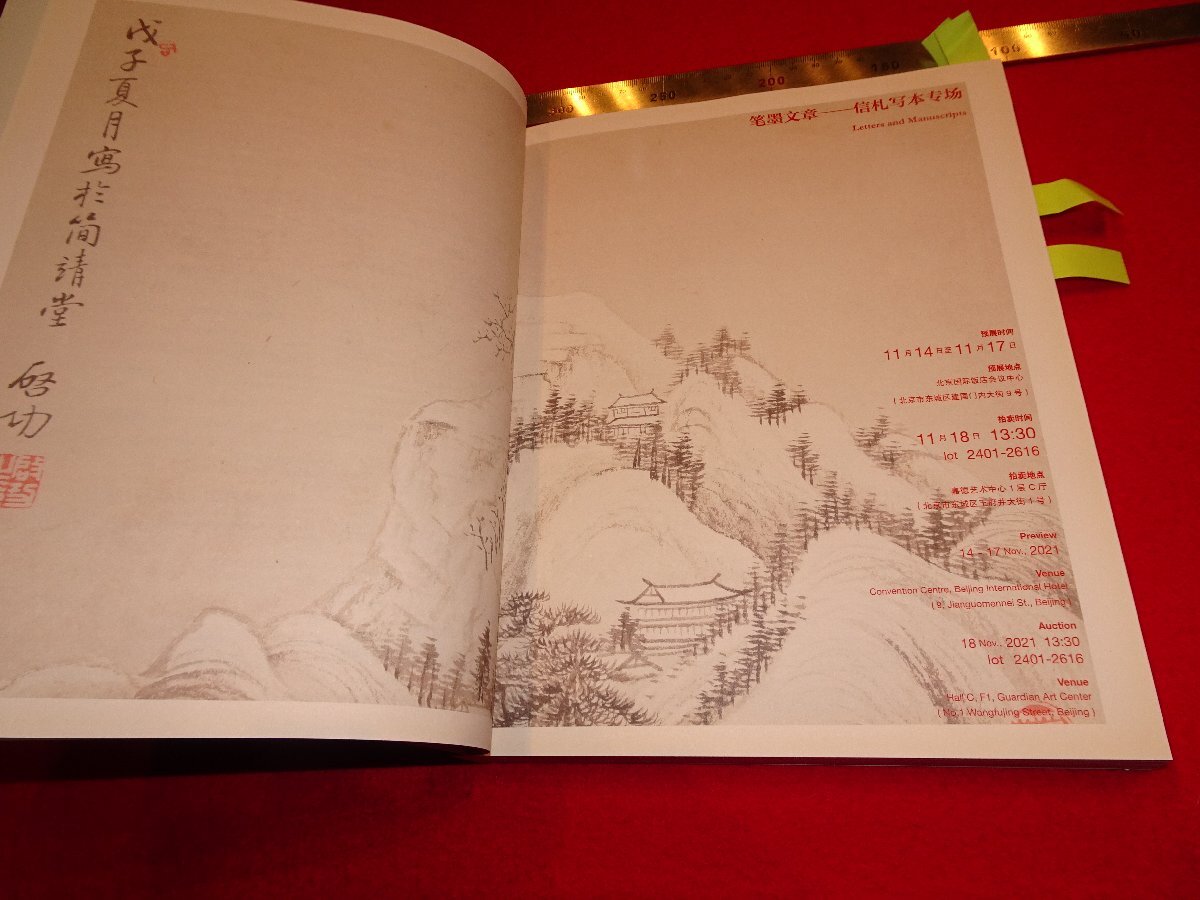 戊子夏月寫於简靖堂
啓功
笔墨文章——信札写本专场
Letters and Manuscripts
预展时间
11月14日至11月17日
预展地点
北京国际饭店会议中心
(北京市东城区建国门内大街9号)
拍卖时间
11月18日 13:30
lot 2401-2616
拍卖地点
嘉德艺术中心1层C厅
(北京市东城区王府井大街1号)
Preview
14 - 17 Nov., 2021
Venue
Convention Centre, Beijing International Hotel
( 9, Jianguomennei St., Beijing )
Auction
18 Nov., 2021 13:30
lot 2401-2616
Venue
Hall C, F1, Guardian Art Center
( No.1 Wangfujing Street, Beijing )
300
250
200
150
100
50